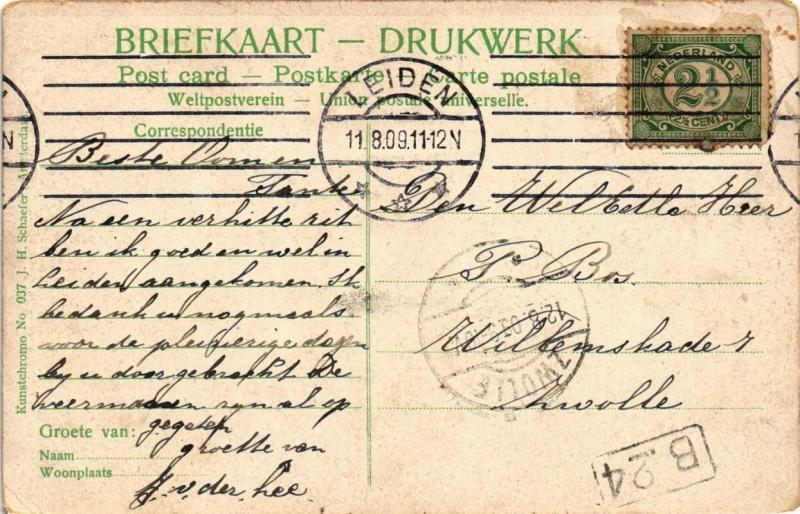 BRIEFKAART — DRUKWERK
Post card — Postkarte — Carte postale
Weltpostverein — Union postale universelle.
Correspondentie
LEIDEN
11.8.09.11-12N
NEDERLAND
2½
2½ CENT
Beste Oom en
Tante
Na een verhitte rit
ben ik goed en wel in
Leiden aangekomen. Ik
bedank u nogmaals
voor de pleizierige dagen
by u doorgebracht. De
zyn al op
gegeten
Groete van:
groette van
Naam
Woonplaats
J. v. der Lee.
Den WelEdele Heer
P. Bos.
Willemskade 7
Zwolle
ZWOLLE
B 24
Kunstchromo No 037 J. H. Schaefer, Amsterdam